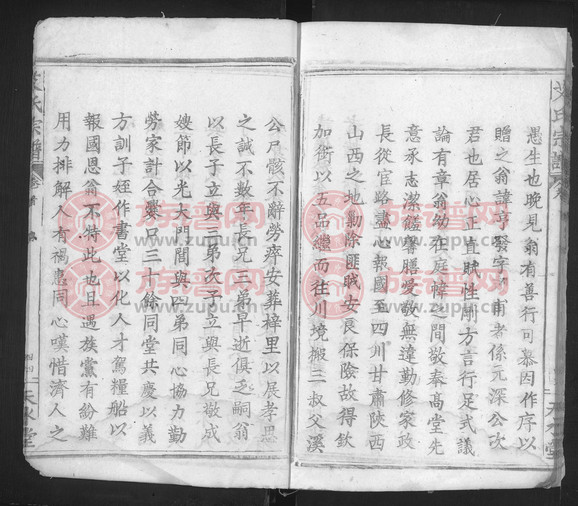 愚生也晚見翁有善行可慕因作序以
贈之翁諱亨發字 甫者係元深公次
君也居心正直賦性剛方言行足式議
論有章翁幼在庭幃之間敬奉高堂先
意承志潔饈馨膳愛敬無違勤修家政
長從官路盡心報國至四川甘肅陝西
山西之地勦除匪賊安良保險故得欽
加銜以五品繼而往川境搬三叔父溪
天水堂
公尺骸不辭勞瘁安葬梓里以展孝思
之誠不数年長兄三弟早逝俱乏嗣翁
以長子立與三弟次子立與長兄敬成
嫂節以光大門閭與四弟同心協力勤
勞家計合爨只三十餘同堂共慶以義
方訓子姪作書堂以化人才駕糧船以
報國恩翁不特此也且遇族黨有紛難
用力排解人有禍患同心嘆惜濟人之
氏宗譜
卷首
天水堂
族譜网
www.zupu.cn